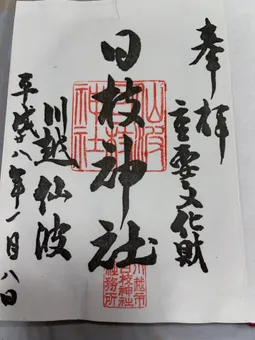 奉拝
重要文化財
日枝神社
川越仙波
平成廿八年一月八日
川越市
日枝神社
社務所